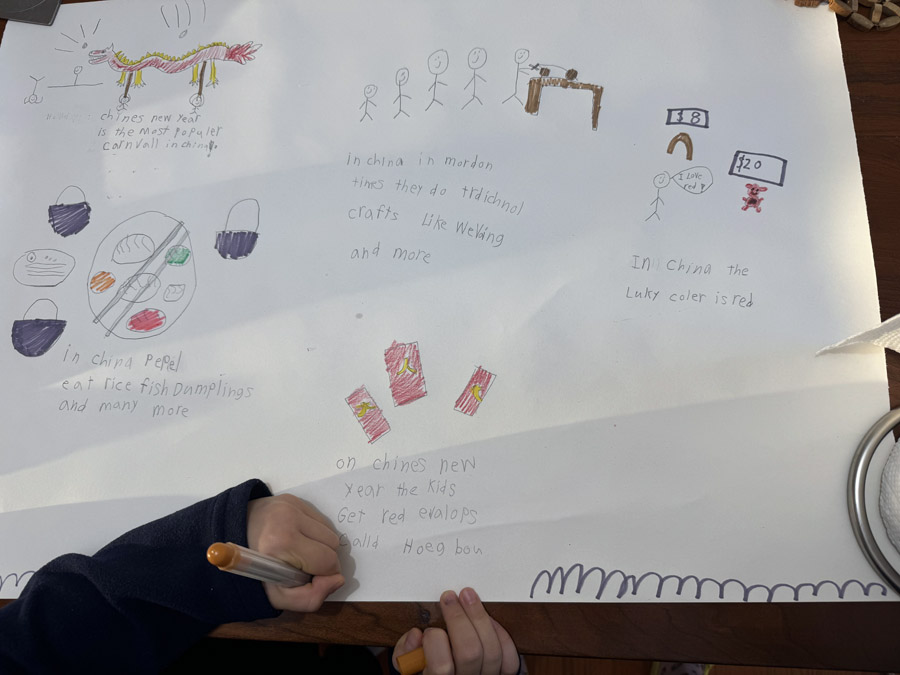 chines new year
is the most populer
carnvall in china.
in china in mordon
times they do trdichnol
crafts like Weking
and more
$8
$20
I Love
red
In China the
Luky coler is red
in china Pepel
eat rice fish Dumplings
and many more
on chines new
year the kids
Get red evalops
Calld Hoeg bou